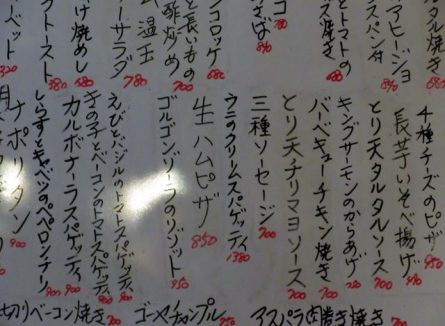 タル焼き 680
アヒージョ
スパン付 850
とトマトの
ス焼き 680
コ 80
そば 840
ンコロッケ 680
と長いもの
酢炒め 700
温玉
ーサラダ 780
け焼めし 680
ラトースト 580
ベット 320
4種チーズのピザ 950
長芋いそべ揚げ
とり天タルタルソース 700
キングサーモンのからあげ 720
バーベキューチキン焼き 700
とり天ナリマヨソース 700
三種ソーセージ 700
ウニのクリームスパゲッティ 1380
生ハムピザ 850
ゴルゴンゾーラのリゾット 950
えびとバジルのトマトスパゲッティ 900
きの子とベーコンのトマトスパゲッティ 900
カルボナーラスパゲッティ 900
しらすとキャベツのペペロンチーノ
ナポリタン 900
切りベーコン焼き 700
ゴーヤチャンプル 750
アスパラ肉巻き焼き 700